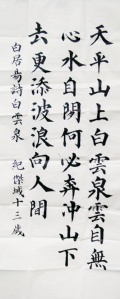 天平山上白雲泉雲自無
心水自閑何必奔冲山下
去更添波浪向人間
白居易詩白雲泉 紀傑城十三歲